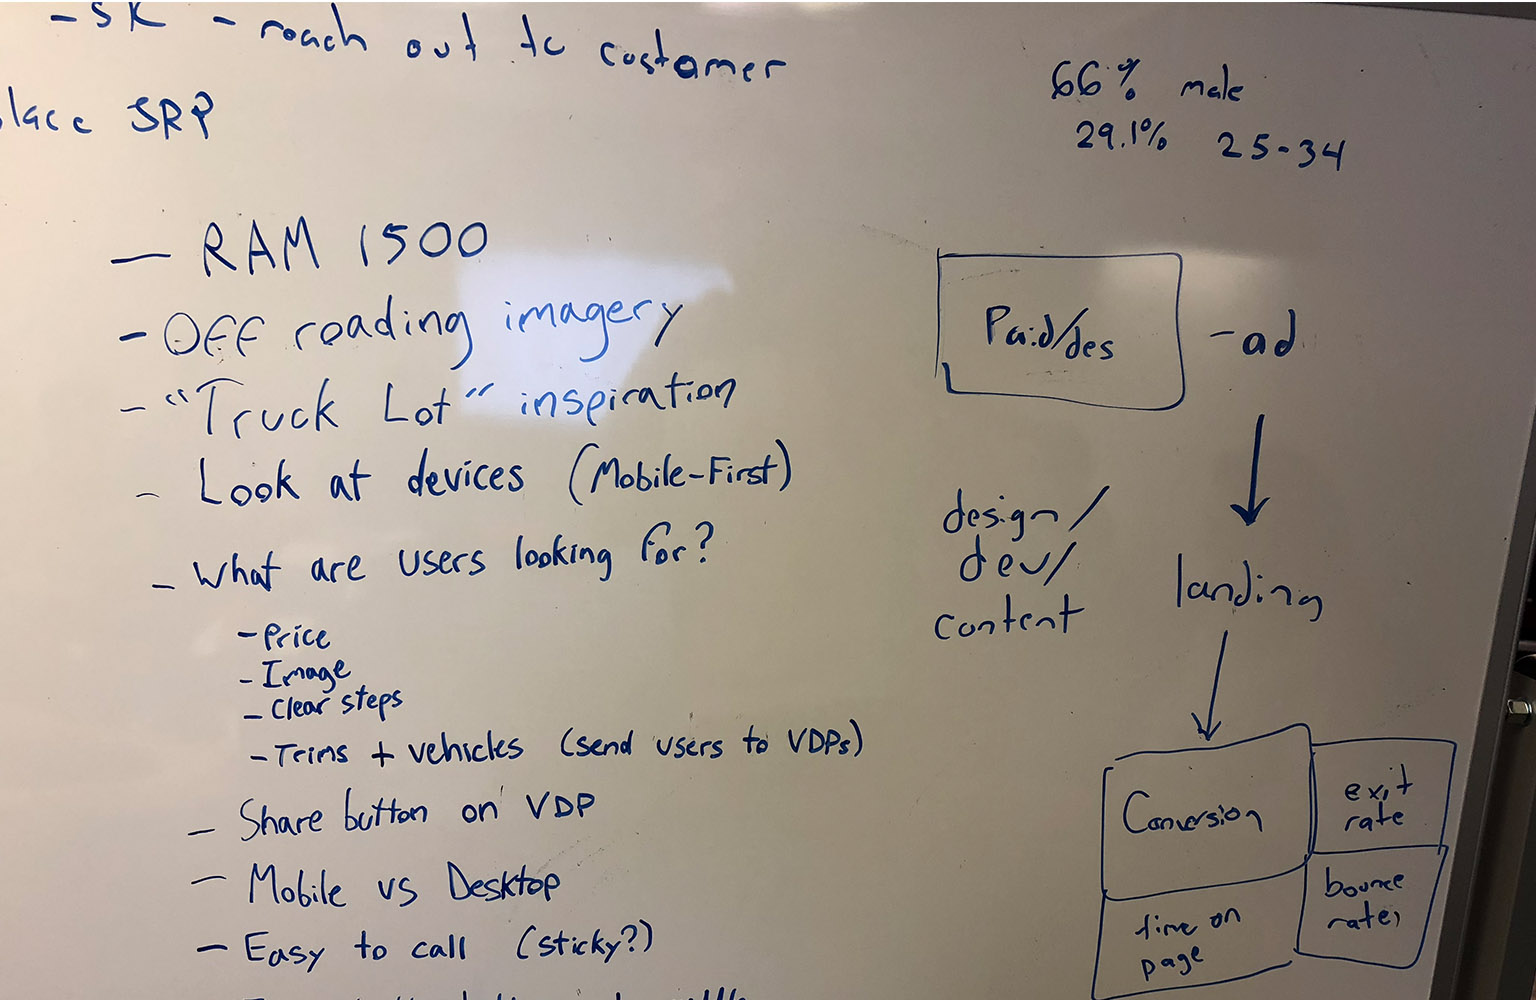 - SK - reach out to customer
SRP
- RAM 1500
- Off roading imagery
- "Truck Lot" inspiration
- Look at devices (Mobile-First)
- What are users looking for?
- Price
- Image
- Clear steps
- Trims + vehicles (send users to VDPs)
- Share button on VDP
- Mobile vs Desktop
- Easy to call (sticky?)
66% male
29.1% 25-34
Paid/des - ad
design/
dev/
content
landing
Conversion
exit
rate
bounce
rate
time on
page